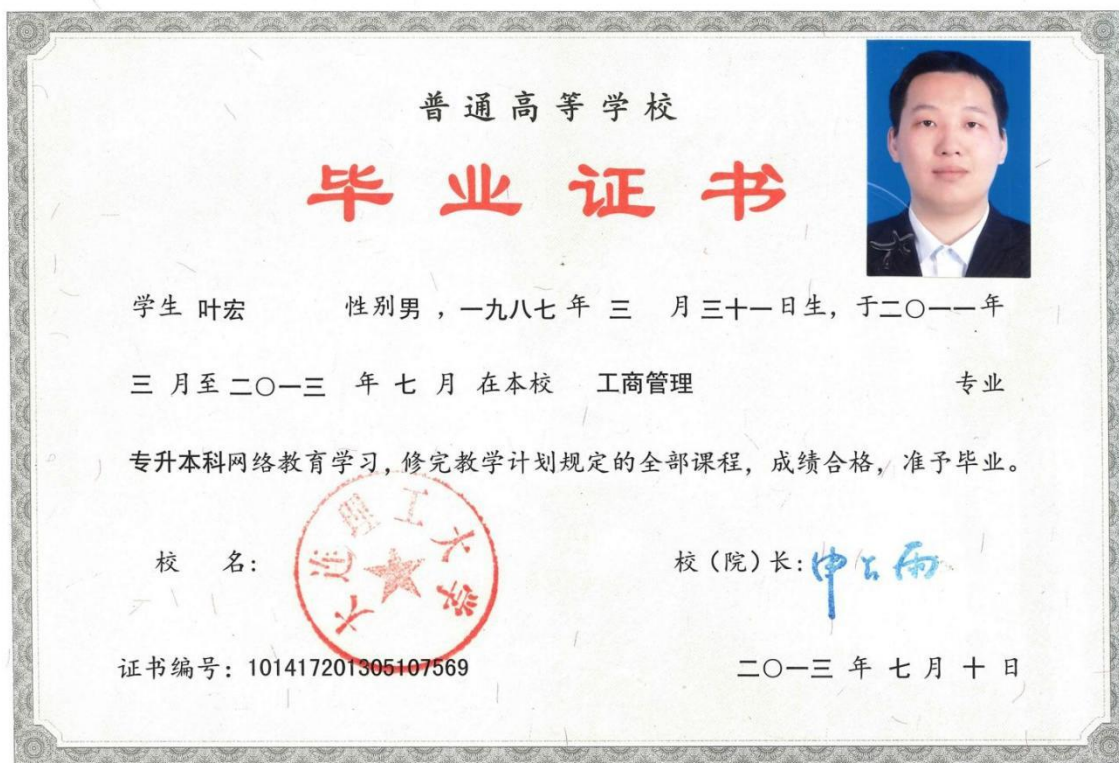 普通高等学校
毕业证书
学生 叶宏 性别男，一九八七年 三 月三十一日生，于二〇一一年
三 月至二〇一三 年 七 月 在本校 工商管理 专业
专升本科网络教育学习，修完教学计划规定的全部课程，成绩合格，准予毕业。
校 名：
大连理工大学
校（院）长：申长雨
证书编号：101417201305107569
二〇一三 年 七 月 十 日